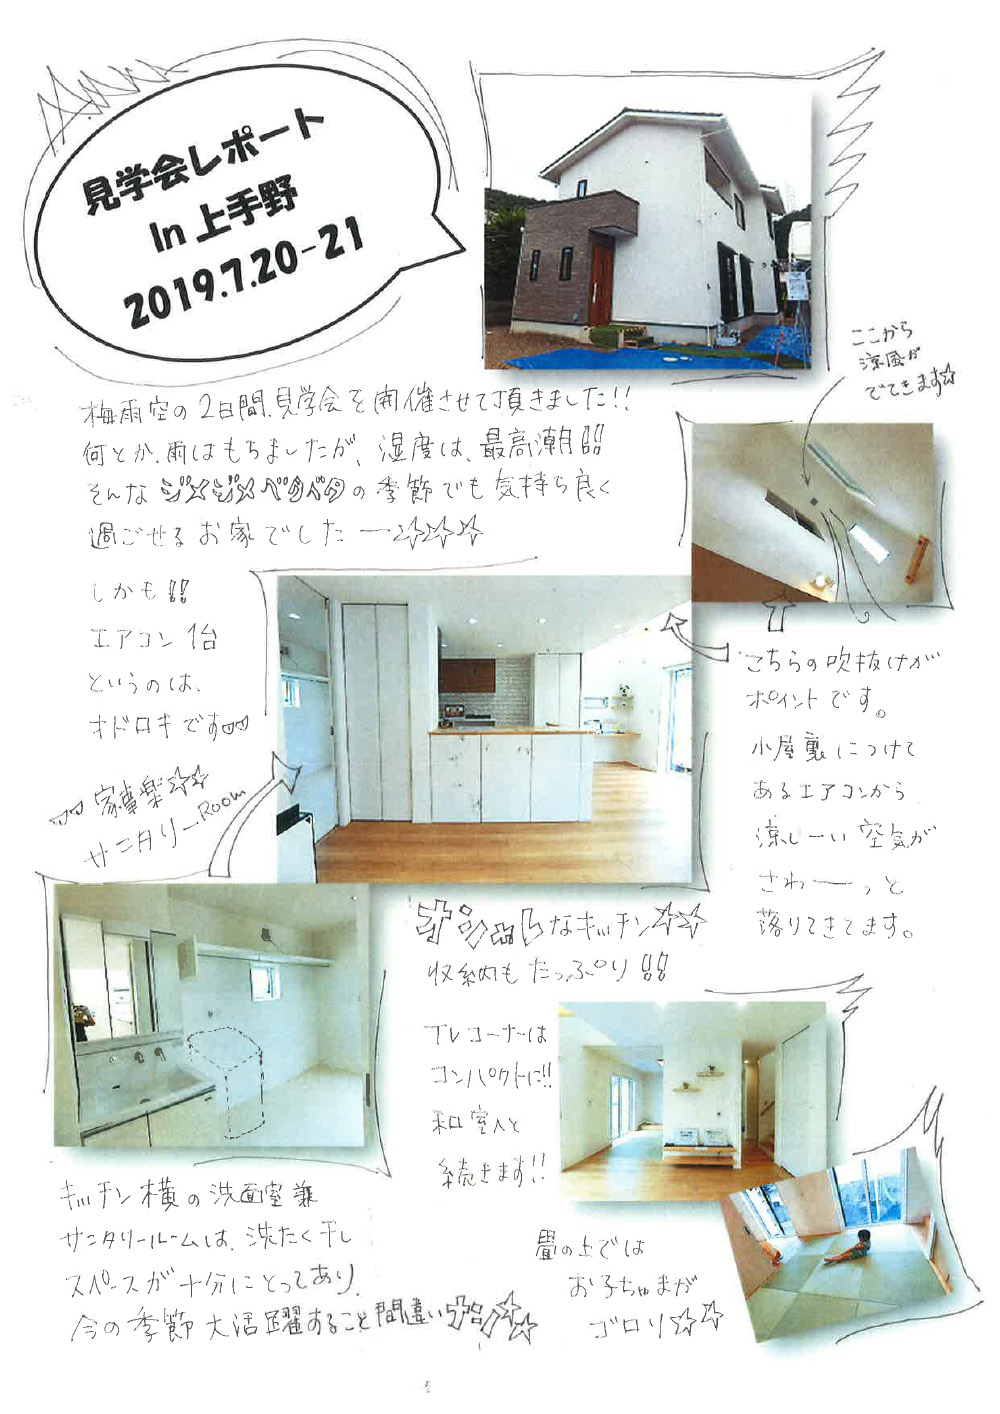 見学会レポート
In 上手野
2019.7.20-21
ここから
涼風が
でてきます☆
梅雨空の2日間、見学会を開催させて頂きました!!
何とか、雨はもちましたが、湿度は、最高潮!!
そんなジメジメベタベタの季節でも気持ち良く
過ごせるお家でしたー☆☆☆
しかも!!
エアコン1台
というのは、
オドロキです
こちらの吹抜けが
ポイントです。
小屋裏につけて
あるエアコンから
涼しーい空気が
さわーーっと
落りてきてます。
家事楽☆☆
サニタリーRoom
オシャレなキッチン☆☆
収納もたっぷり!!
TVコーナーは
コンパクトに!!
和室へと
続きます!!
キッチン横の洗面室兼
サニタリールームは、洗たく干し
スペースが十分にとってあり、
今の季節大活躍すること間違いナシ☆☆
畳の上では
お子ちゃまが
ゴロリ☆☆